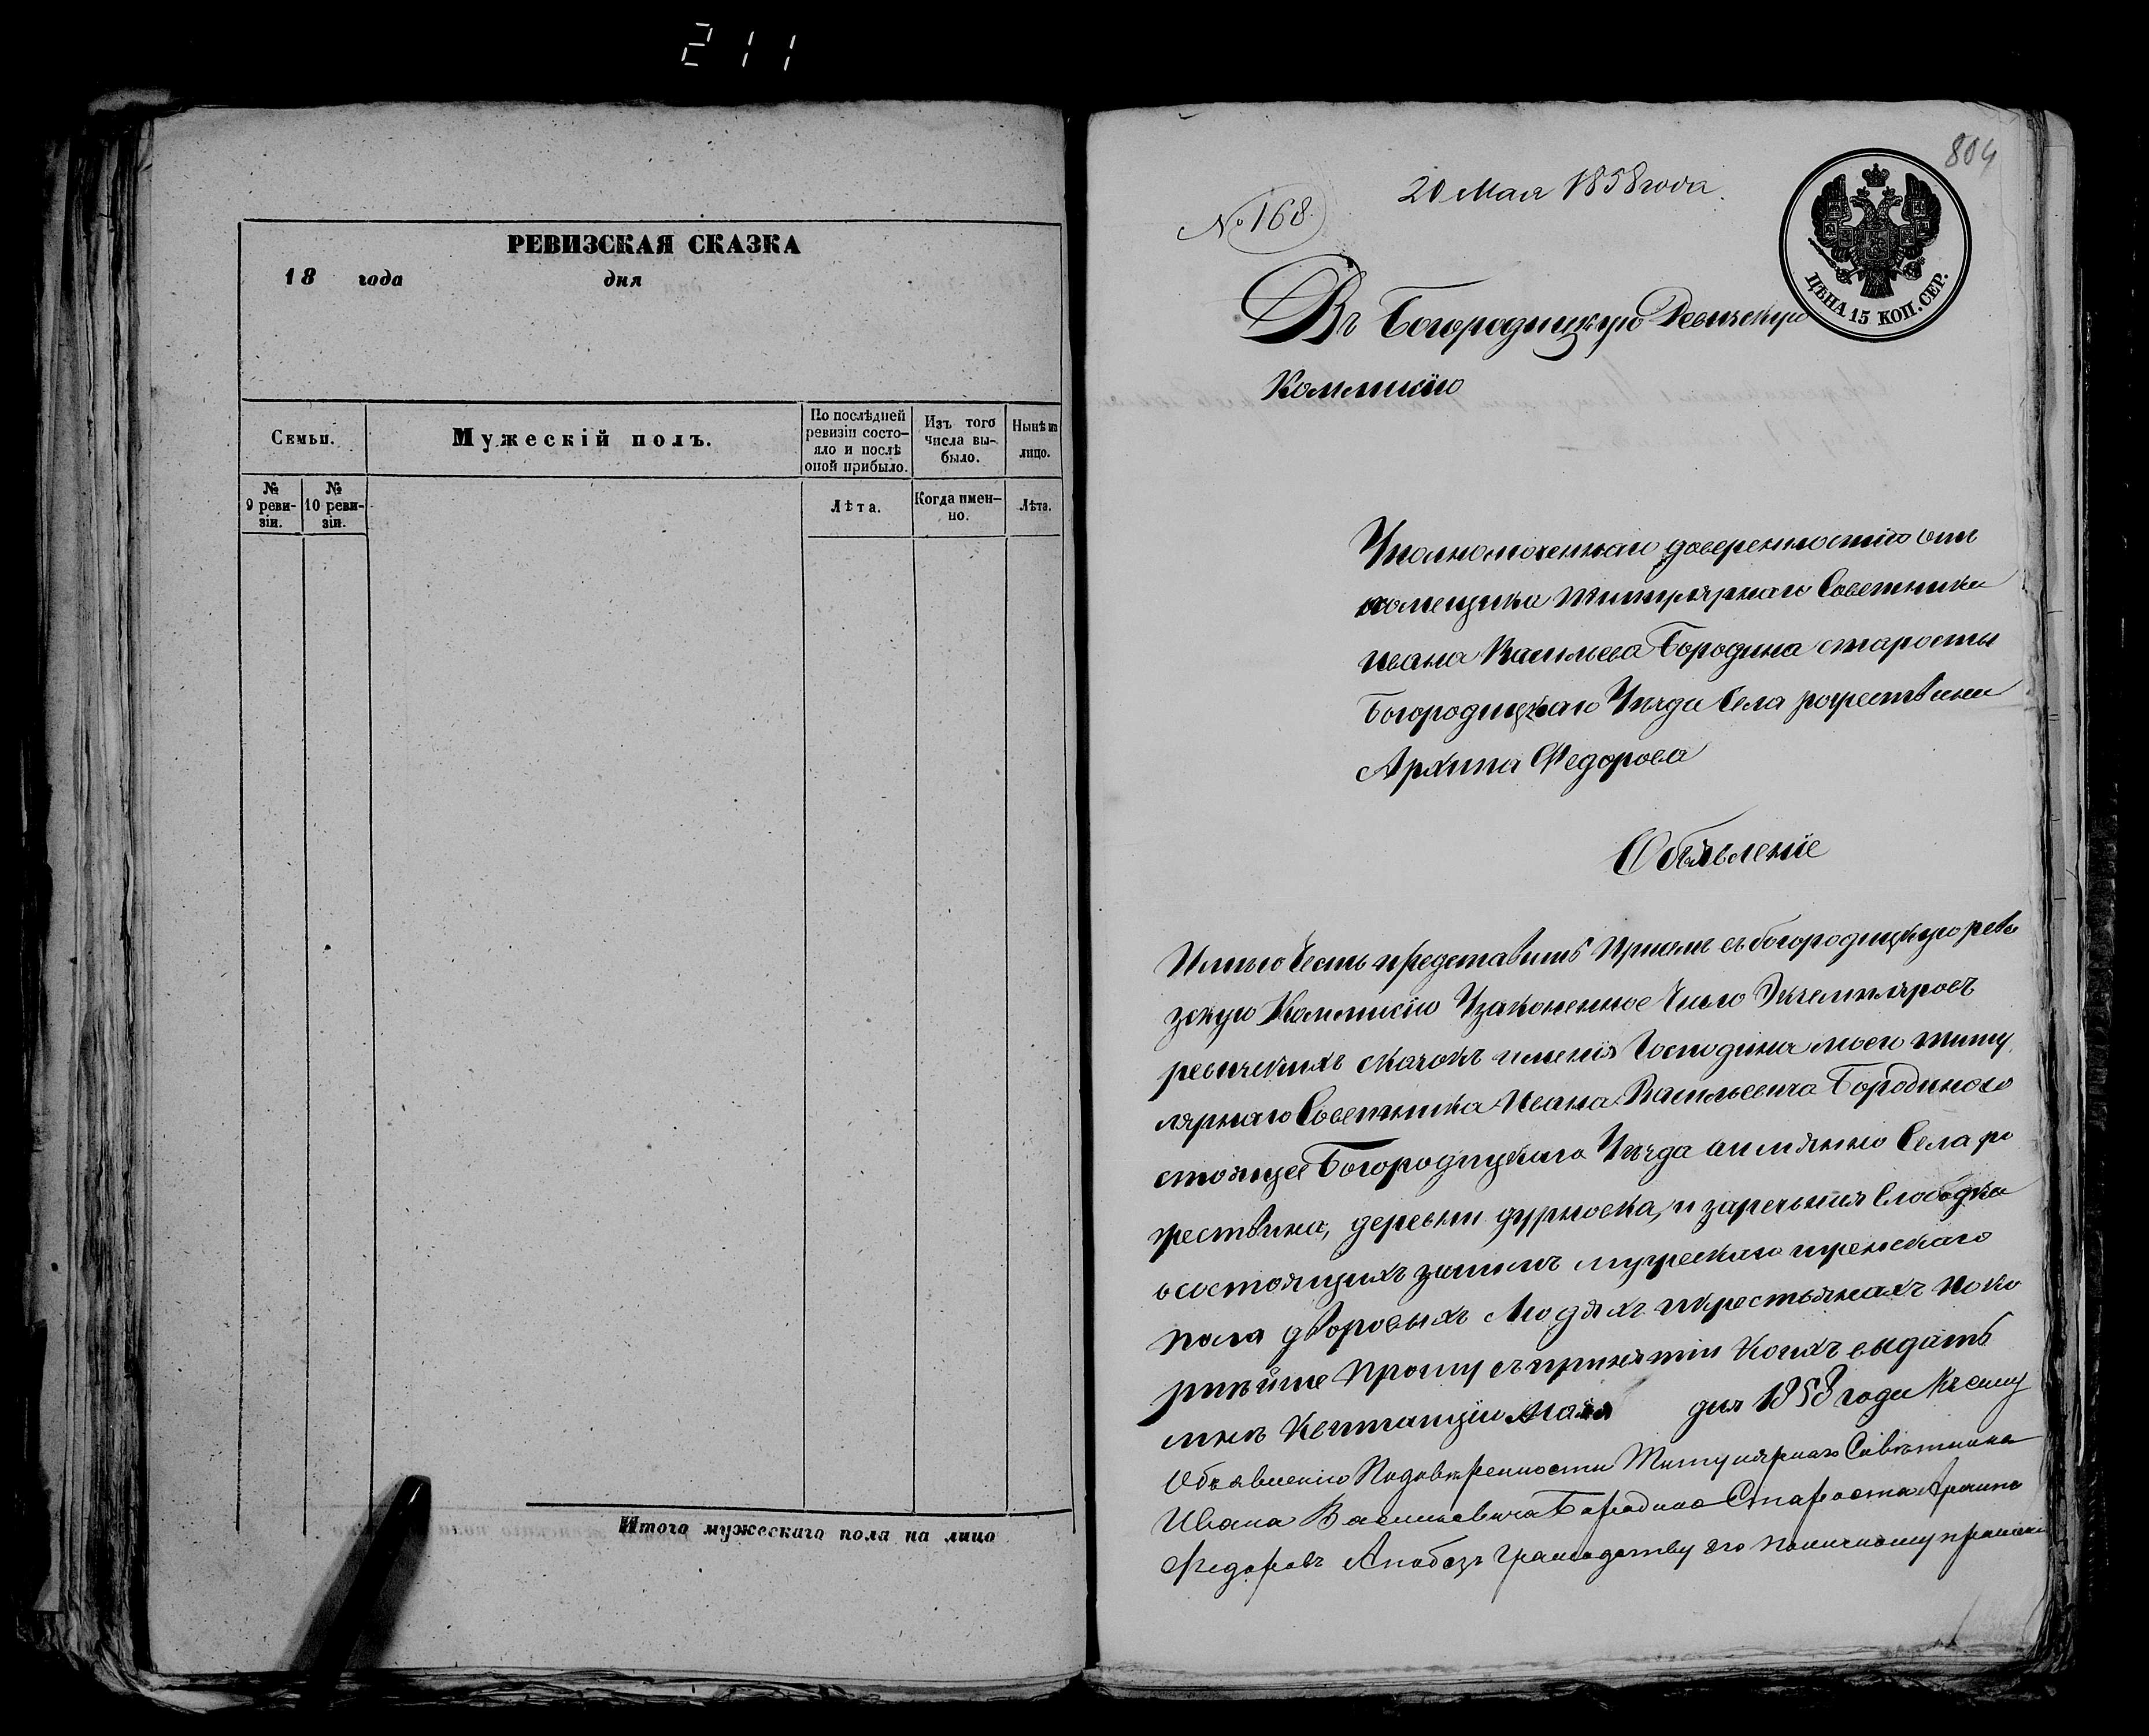 211
РЕВИЗСКАЯ СКАЗКА
18 года дня
Семьи.
Мужескій полъ.
По послѣдней ревизіи состо-
яло и послѣ оной прибыло.
Изъ того числа вы-
было.
Нынѣ на лицо.
№ 9 реви-
зіи.
№ 10 реви-
зіи.
Лѣта.
Когда имен-
но.
Лѣта.
Итого мужескаго пола на лицо
804
20 Мая 1858 года.
№ 168
ЦѢНА 15 КОП. СЕР.
Въ Богородицкую Ревизскую
Коммисію
Уполномоченнаго доверенностію отъ
помещика титулярнаго Советника
Ивана Васильева Бородина старосты
Богородицкаго Уѣзда Села рожествина
Архипа Федорова
Объявленіе
Имѣю Честь представить при семъ въ богородицкую реви
зскую Коммисію Узаконенное Число Экземпляровъ
ревизскихъ сказокъ имения Господина моего титу
лярнаго Советника Ивана Васильевича Бородина со
стоящее Богородицкаго Уѣзда аимянно Села ро
жествина, деревни дурновка, и заречьная Слободка
осостоящихъ занимъ мужескаго иженскаго
пола дворовыхъ Людяхъ икрестьянахъ поко
рнѣйше прошу впринятіи Коихъ выдать
мнѣ Квитанцію мая дня 1858 года Къ сему
Объявленію Подовѣренности Титулярнаго Совѣтника
Ивана Васильевича Бородина Староста Архипъ
Федоровъ Апобезъ Грамодству его поличному прошени